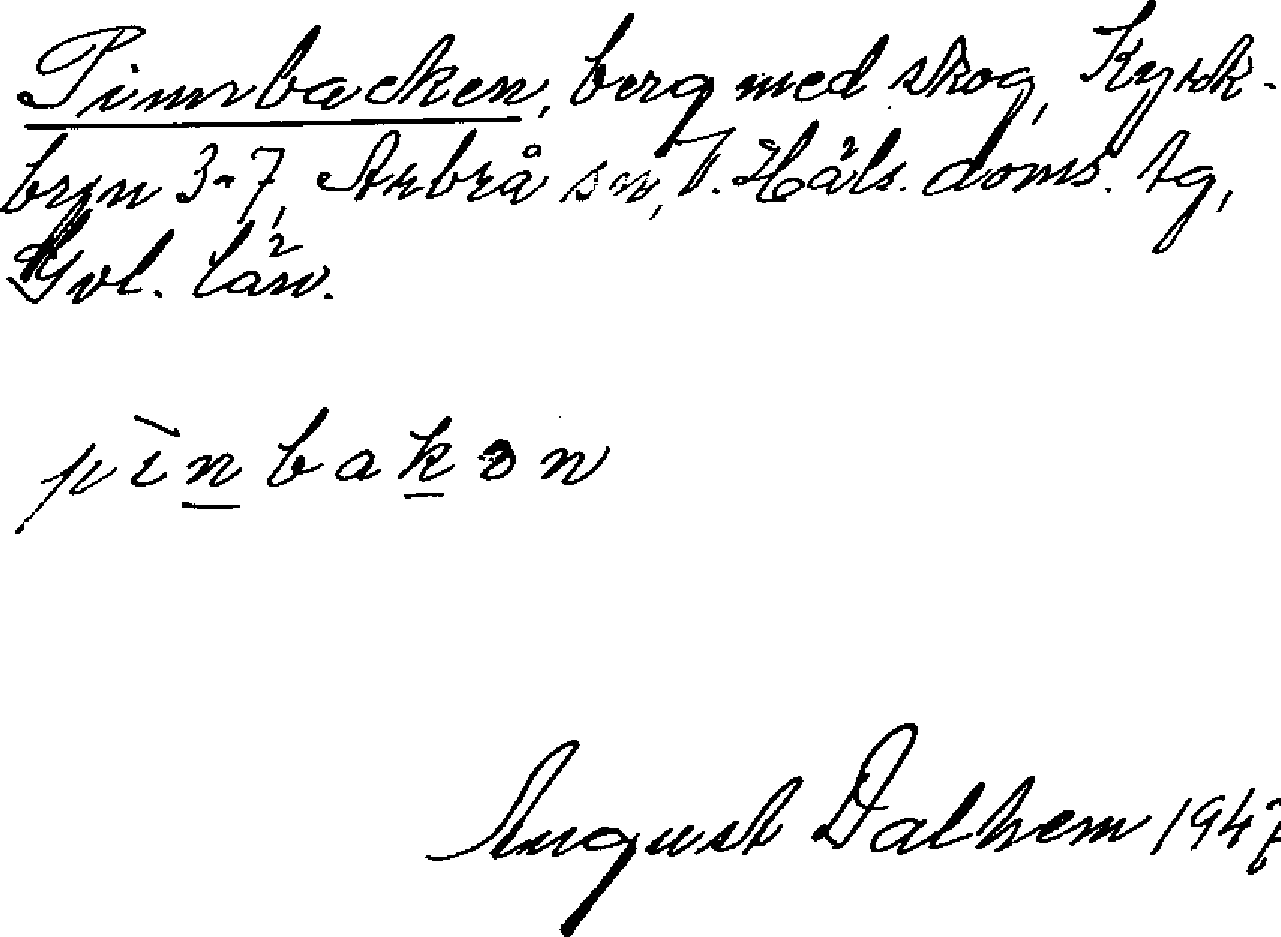 Pinnbacken, berg med skog, Kyrk-
byn 3-7, Arbrå sn, V. Häls. doms. tg,
Gvl. län.
pìnbakən
August Dalhem 1947